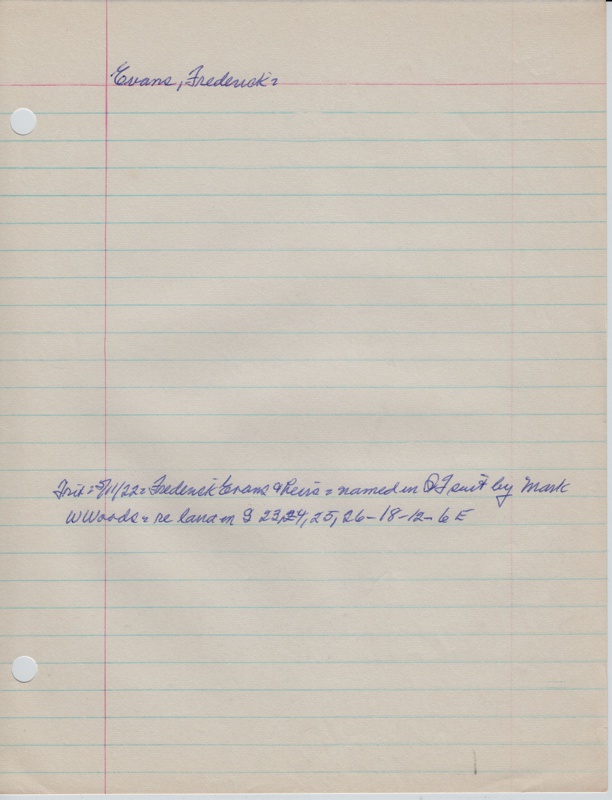 Evans, Frederick=
Trib=5/11/22=Frederick Evans & heirs = named in QT suit by Mark
W Woods = re land in S 23,24,25,26-18-12-6 E